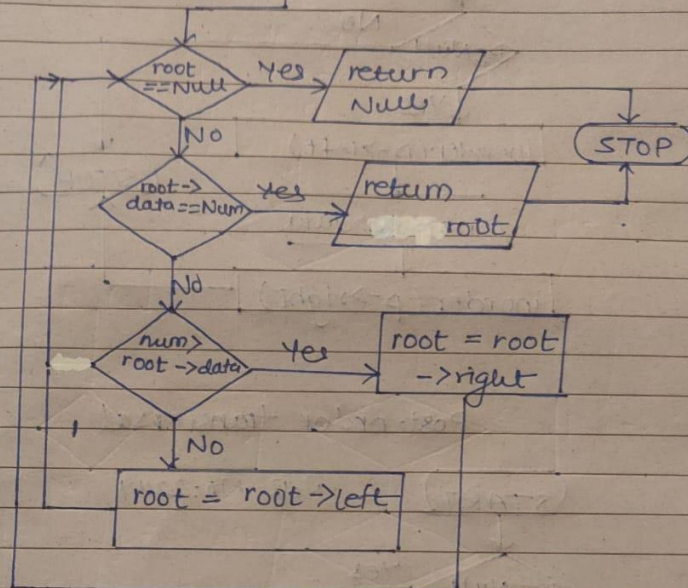 root
==Null
Yes
return
Null
STOP
No
root->
data==Num
Yes
return
root
No
num>
root->data
Yes
root = root
->right
No
root = root->left